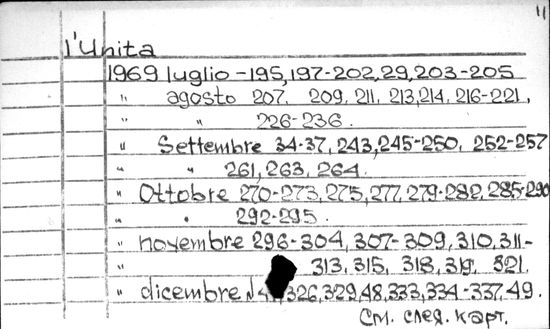 11
l'Unita
1969 luglio - 195, 197-202, 29, 203-205
" agosto 207, 209, 211, 213, 214, 216-221,
" " 226-236.
" Settembre 34-37, 243, 245-250, 252-257
" " 261, 263, 264.
" Ottobre 270-273, 275, 277, 279-282, 285-290
" " 292-295.
" novembre 296-304, 307-309, 310, 311-
" 313, 315, 318, 319, 321.
" dicembre 326, 329, 48, 333, 334-337, 49.
См. след. карт.